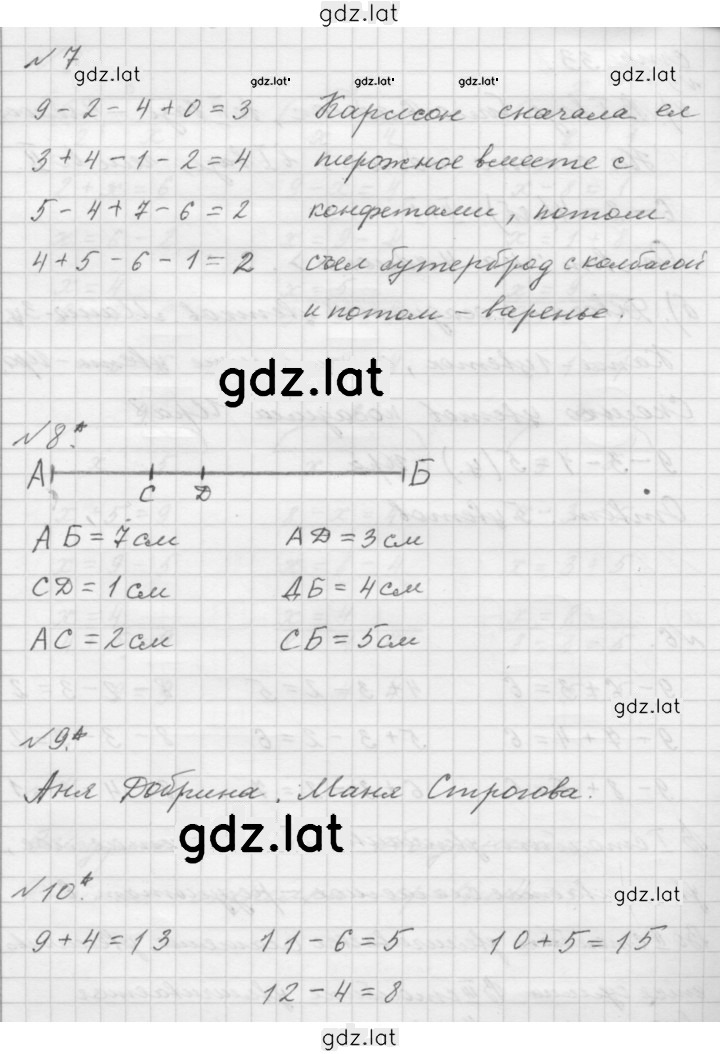 gdz.lat
№7
gdz.lat gdz.lat gdz.lat gdz.lat
9-2-4+0=3 Карлсон сначала ел
3+4-1-2=4 пирожное вместе с
5-4+7-6=2 конфетами, потом
4+5-6-1=2 съел бутерброд с колбасой
и потом - варенье.
gdz.lat
№8*.
А Б
С D
АБ=7см АD=3см
СD=1см ДБ=4см
АС=2см СБ=5см
gdz.lat
№9*.
Аня Добрина. Маня Строгова.
gdz.lat
№10*.
gdz.lat
9+4=13 11-6=5 10+5=15
12-4=8
gdz.lat